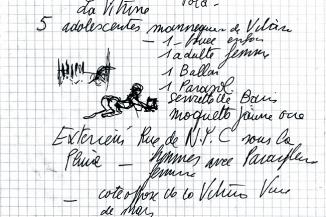 La Vitrine
5 adolescentes mannequins de Vitrine
1 adulte femme
1 Ballon
1 Parasol
serviette de Bain
moquette jaune
Exterieur Rue de N.Y.C sous la
Pluie - femmes avec Parapluies
femme
- cote opose de la Vitrine Vue
de